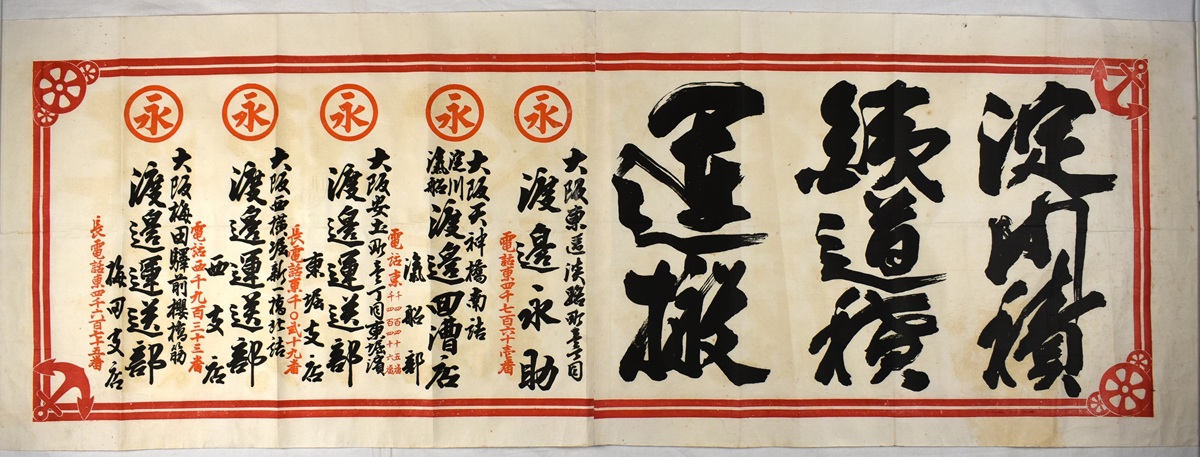 淀川積
鉄道積
運搬
永
大阪東区淡路町壱丁目
渡邊永助
電話東四千七百六十壱番
永
大阪天神橋南詰
淀川
滊船
渡邊回漕店
滊船部
電話東
千四百四十五番
千四百四十六番
永
大阪安土町壱丁目東堀濱
渡邊運送部
東堀支店
長電話東千〇弐十九番
永
大阪西横堀新町橋北詰
渡邊運送部
西支店
電話西千九百三十三番
永
大阪梅田驛前櫻橋筋
渡邊運送部
梅田支店
長電話東四千六百七十五番